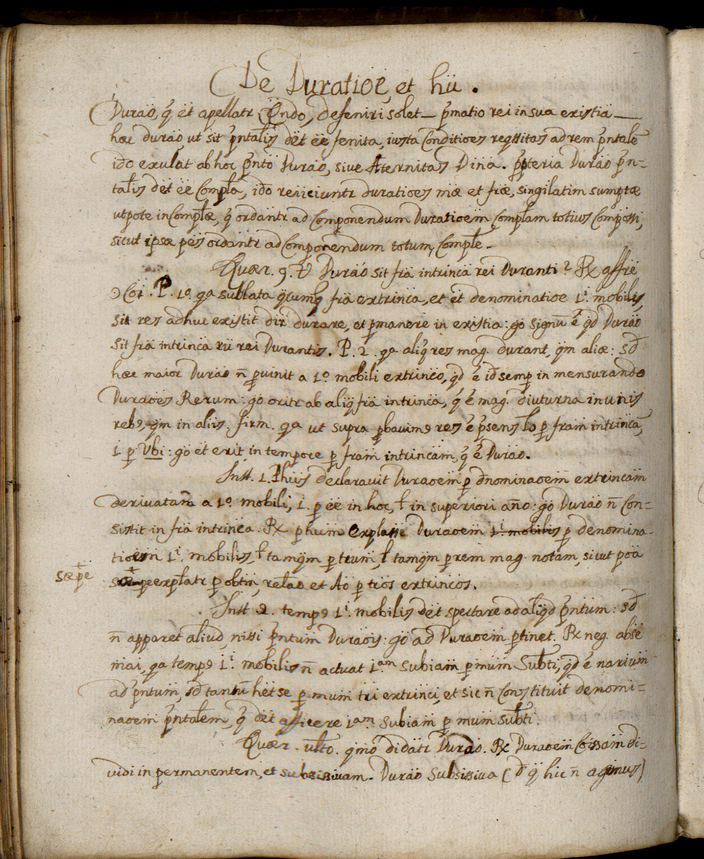 De Duratioē, et hū.
Durao, q̄ et apellatr Qndo, defeniri solet pmatio rei in sua existia
hac durao ut sit pntalis det ēe fenita, iusta Conditioes reqsitas ad rem pntale
ido exulat ab hoc pnto Durao, sive Æternitas Dina. ppteria Durao pn-
talis det ēe Compla, ido reiiciuntr duratioes mæ et fræ, singilatim sumptæ
utpote in Complæ, q̄ ordantr ad Componendum Duratioem complam totius Compossi,
sicut ipsæ pes ordantr ad Componendum totum Comple.
Quær. 9. ū Durao sit fra intrinca rei Duranti? Rx affre
P. 1o. qa sullata qcumq fra extrinca, et et denominatioe 1i. mobilis
sit res adhuc existit dir durare, et pmanere in existia: go signū ē qd Durao
sit fra intrinca rei Durantis. P. 2. qa aliq res mag. durant, qm aliæ: sd
hæc maior Durao n̄ puinit a 1o mobili extrinco, qd ē id semp in mensurando
Duraoes Rerum: go oritr ab aliq fra intrinca, q ē mag. diuturna in unis
reb9, qm in aliis. firm. qa ut supra pbauim9 res ē psens lo p fram intrinca,
i. p Vbi: go et erit in tempore p fram intrincam, q ē Durao.
Inst. 1. Phius declaravit Duraoem p dnominaoem extrincam
derivatam a 1o mobili, i. p ēe in hoc, l in superiori año: go Durao n̄ Con-
sistit in fra intrinca. Rx phium explasse Duraoem 1i mobilis p denomina-
tioem 1i. mobilis, l tamqm p trum l tamqm p rem mag. notam, sicut poa
sæpe explatr p obtm, relao et Ao p tros extrincos.
sæpe
Inst. 2. temp9 1i. mobilis det spectare ad aliqd pntum: sd
n̄ apparet aliud, nissi pntum Duraois: go ad Duraoem ptinet. Rx neg. abse
mai, qa temp9 1i. mobilis n̄ actuat 1am subiam p mum Subti, qd ē narium
ad pntum, sd tantū het se p mum tri extrinci, et sic n̄ Constituit denomi-
naoem pntalem, q̄ det afficere 1am subiam p mum subti.
Quær. ulto. qmo diuidatr Durao. Rx Duraoem Coissam di-
vidi in permanentem, et subsisivam. Durao Subsisiua (d q hic n̄ agimus)